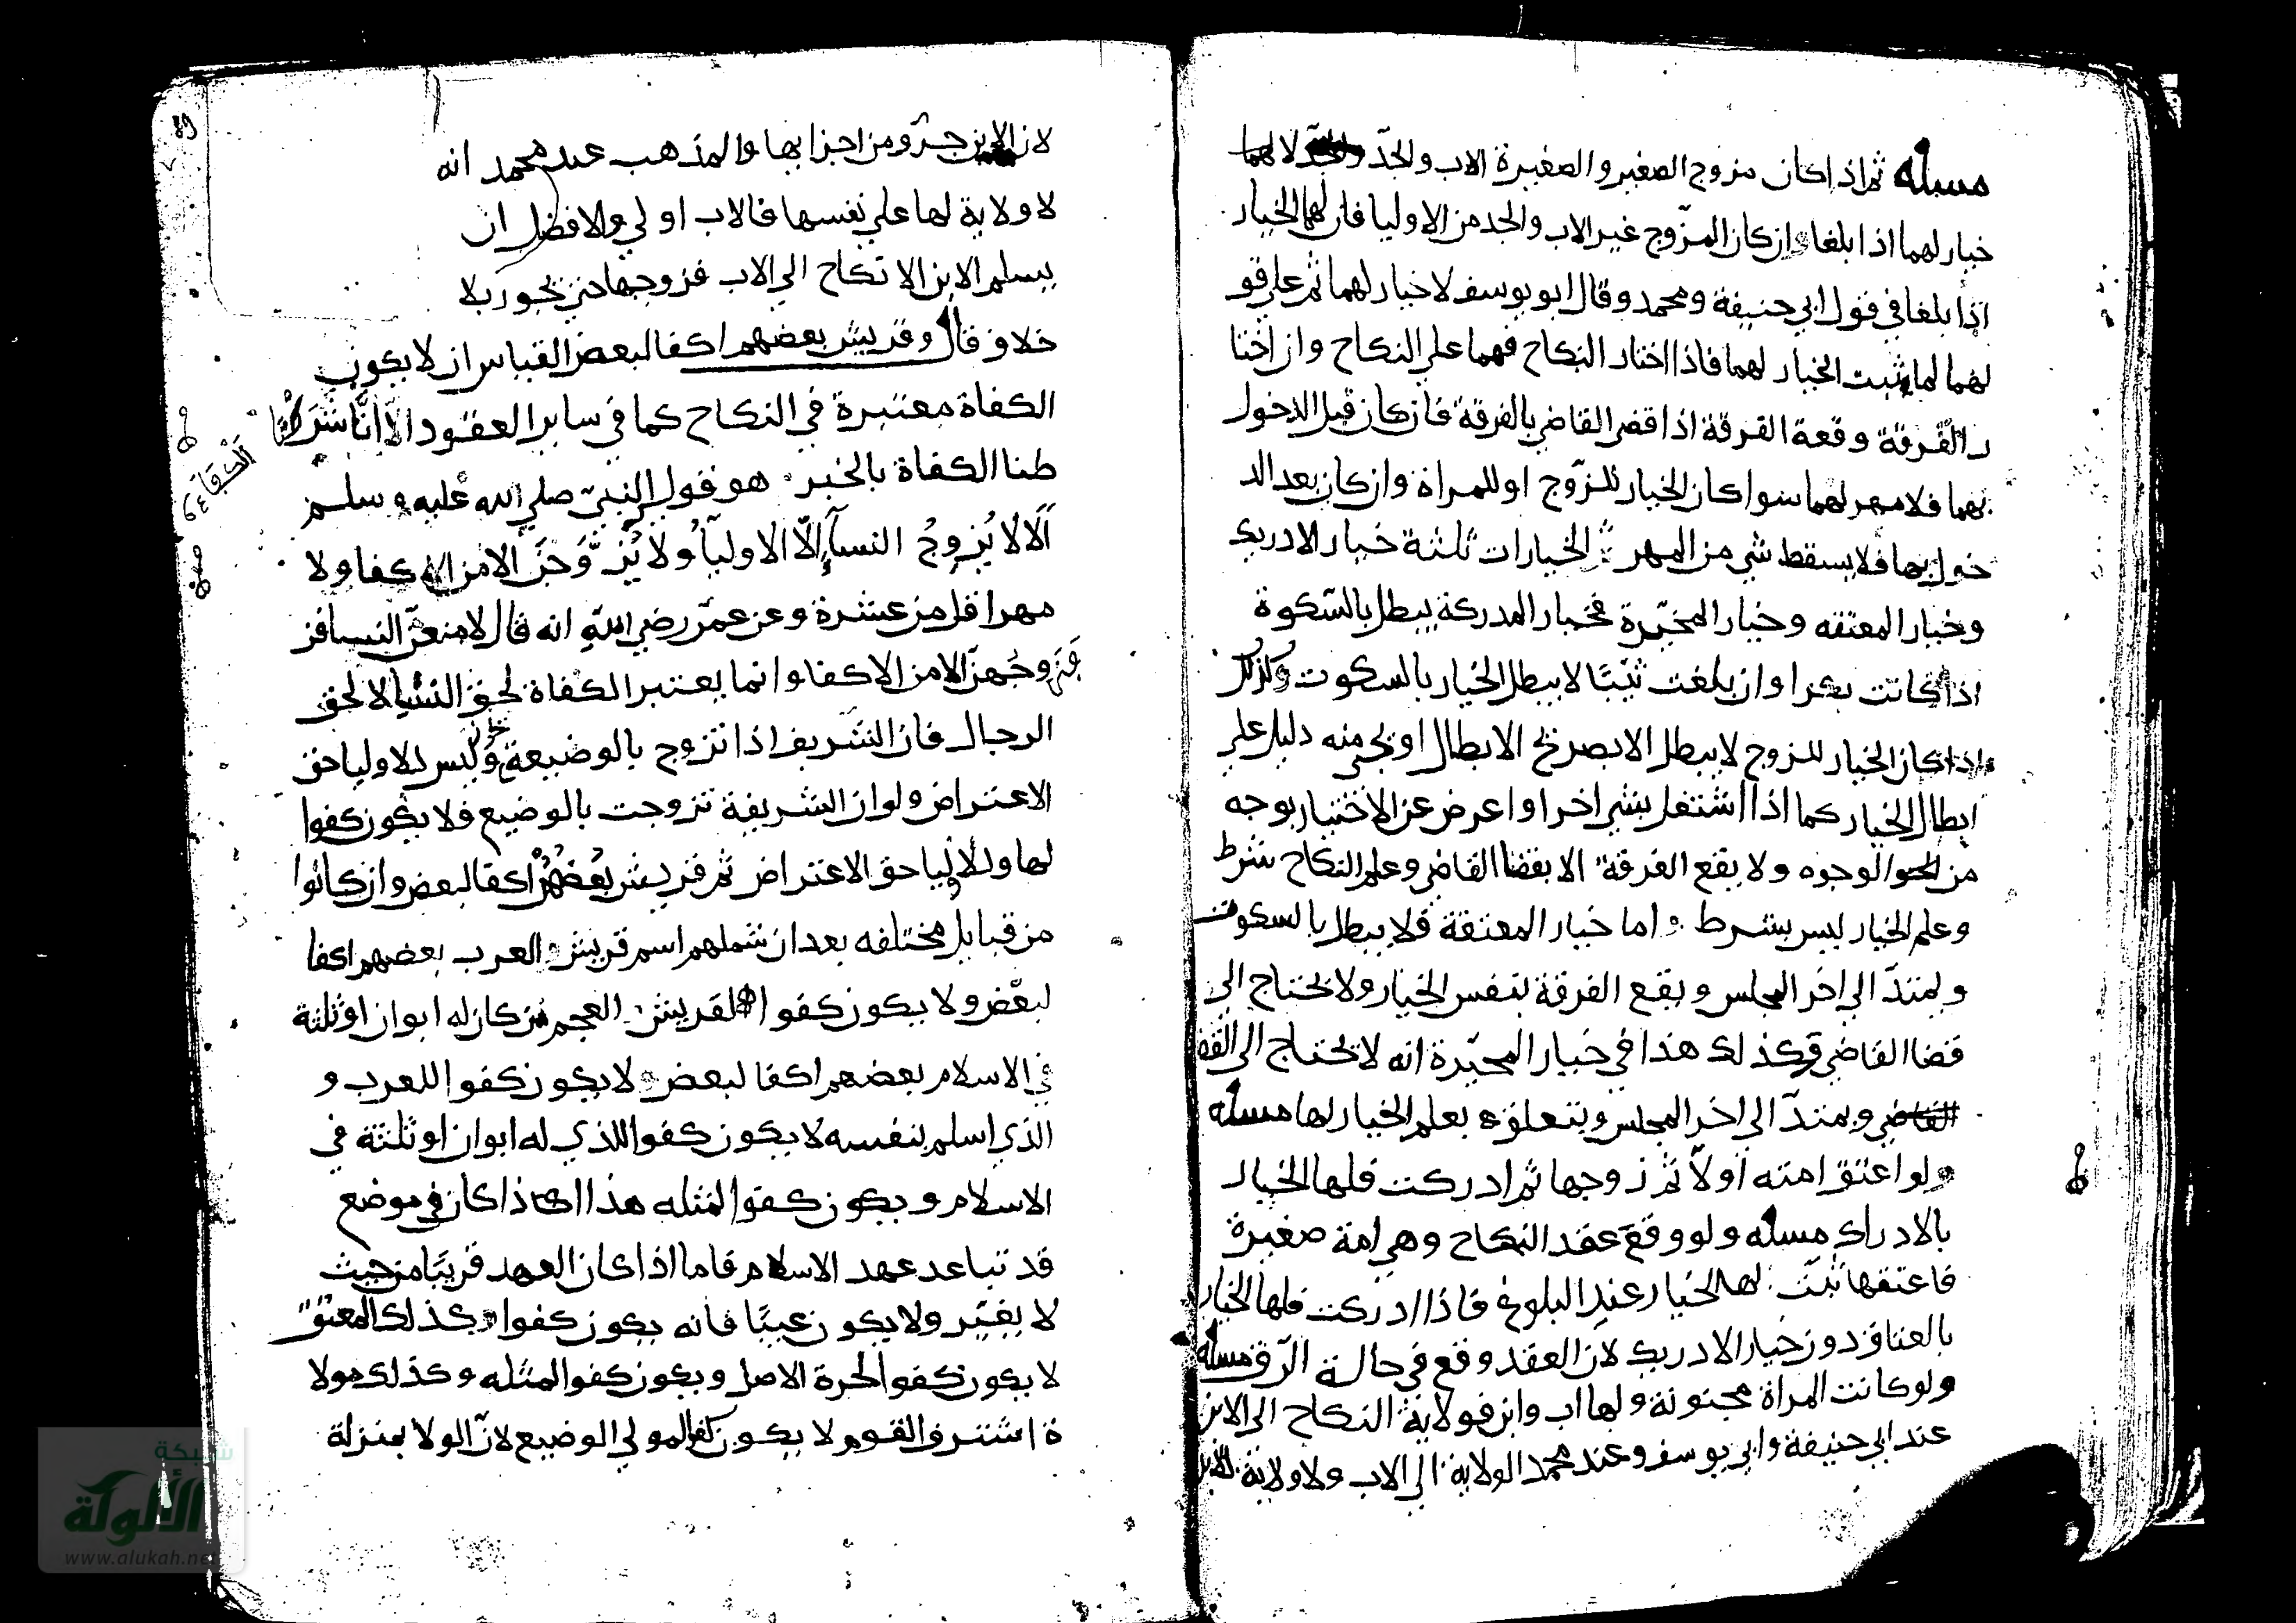 مسله ثم اذا كان مزوج الصغير والصغيرة الاب والجدّ لا
خيار لهما اذا بلغا وان كان المزوّج غير الاب والجد من الاوليا فان لهما الخيار
اذا بلغا في قول ابي حنيفة ومحمد وقال ابو يوسف لا خيار لهما ثم على قو
لهما لما يثبت الخيار لهما فاذا اختار النكاح فهما على النكاح وان اختا
ر الفرقة وقعة الفرقة اذا قضى القاضي بالفرقة فان كان قبل الدخول
بهما فلا مهر لهما سوا كان الخيار للزّوج او للمراة وان كان بعد الد
خول بها فلا يسقط شي من المهر الخيارات ثلثة خيار الادريك
وخيار المعتقه وخيار المخيّرة فخيار المدركة يبطل بالسّكوة
اذا كانت بكرا وان بلغت ثيّبًا لا يبطل الخيار بالسكوت وكذلك
اذا كان الخيار للزوج لا يبطل الا بصريح الابطال او يجي منه دليل على
ابطال الخيار كما اذا اشتغل بشي اخر او اعرض عن الاختيار بوجه
من الوجوه ولا يقع الفرقة الا بقضا القاضي وعلم النكاح شرط
وعلم الخيار ليس بشرط واما خيار المعتقة فلا يبطل بالسكوت
ويمتدّ الى اخر المجلس ويقع الفرقة بنفس الخيار ولا يحتاج الى
قضا القاضي وكذلك هذا في خيار المخيّرة انه لا يحتاج الى القضا
القاضي ويمتدّ الى اخر المجلس ويتعلق بعلم الخيار لها مسله
ولو اعتق امته اولًا ثم زوجها ثم ادركت فلها الخيار
بالادراك مسله ولو وقع عقد النكاح وهي امة صغيرة
فاعتقها ثبت لها الخيار عند البلوغ فاذا ادركت فلها الخيار
بالعتاق دون خيار الادريك لان العقد وقع في حالة الرّق مسله
ولو كانت المراة مجنونة ولها اب وابن فولاية النكاح الى الابن
عند ابي حنيفة وابي يوسف وعند محمد الولاية الى الاب ولا ولاية للابن
89
لان الابن جزو من اجزايها والمذهب عند محمد انه
لا ولاية لها على نفسها فالاب اولى والافضل ان
يسلم الابن الانكاح الى الاب فزوجها حتى يجوز بلا
خلاف قال وقريش بعضهم اكفا لبعض القياس ان لا يكون
الكفاة معتبرة في النكاح كما في ساير العقود الا انّا شر
طنا الكفاة بالخبر هو قول النبيّ صلي الله عليه وسلم
اَلا لا يُزوجُ النسآ إلّا الاوليآُ ولا يُزوَّجن الا من الاكفا ولا
مهر اقل من عشرة وعن عمر رضي الله انه قال لامنعنّ النسا فر
وجهنّ الا من الاكفا وانما يعتبر الكفاة لحق النسا لا لحق
الرجال فان الشريف اذا تزوج بالوضيعة وليس للاوليا حق
الاعتراض ولو ان الشريفة تزوجت بالوضيع فلا يكون كفوا
لها وللاوليا حق الاعتراض ثم قريش بعضهم اكفا لبعض وان كانوا
من قبايل مختلفه بعد ان شملهم اسم قريش العرب بعضهم اكفا
لبعض ولا يكون كفوا لقريش العجم من كان له ابوان او ثلثة
في الاسلام بعضهم اكفا لبعض ولا يكون كفوا للعرب و
الذي اسلم بنفسه لا يكون كفوا للذي له ابوان او ثلثة في
الاسلام ويكون كفوا لمثله هذا اذا كان في موضع
قد تباعد عهد الاسلام فاما اذا كان العهد قريبًا من حيث
لا يغيّر ولا يكون عيبًا فانه يكون كفوا وكذلك المعتق
لا يكون كفوا لحرة الاصل ويكون كفوا لمثله وكذلك مولا
ة اشترف القوم لا يكون كفا لمولى الوضيع لانّ الولا بمنزلة
شبكة
الألوكة
www.alukah.net